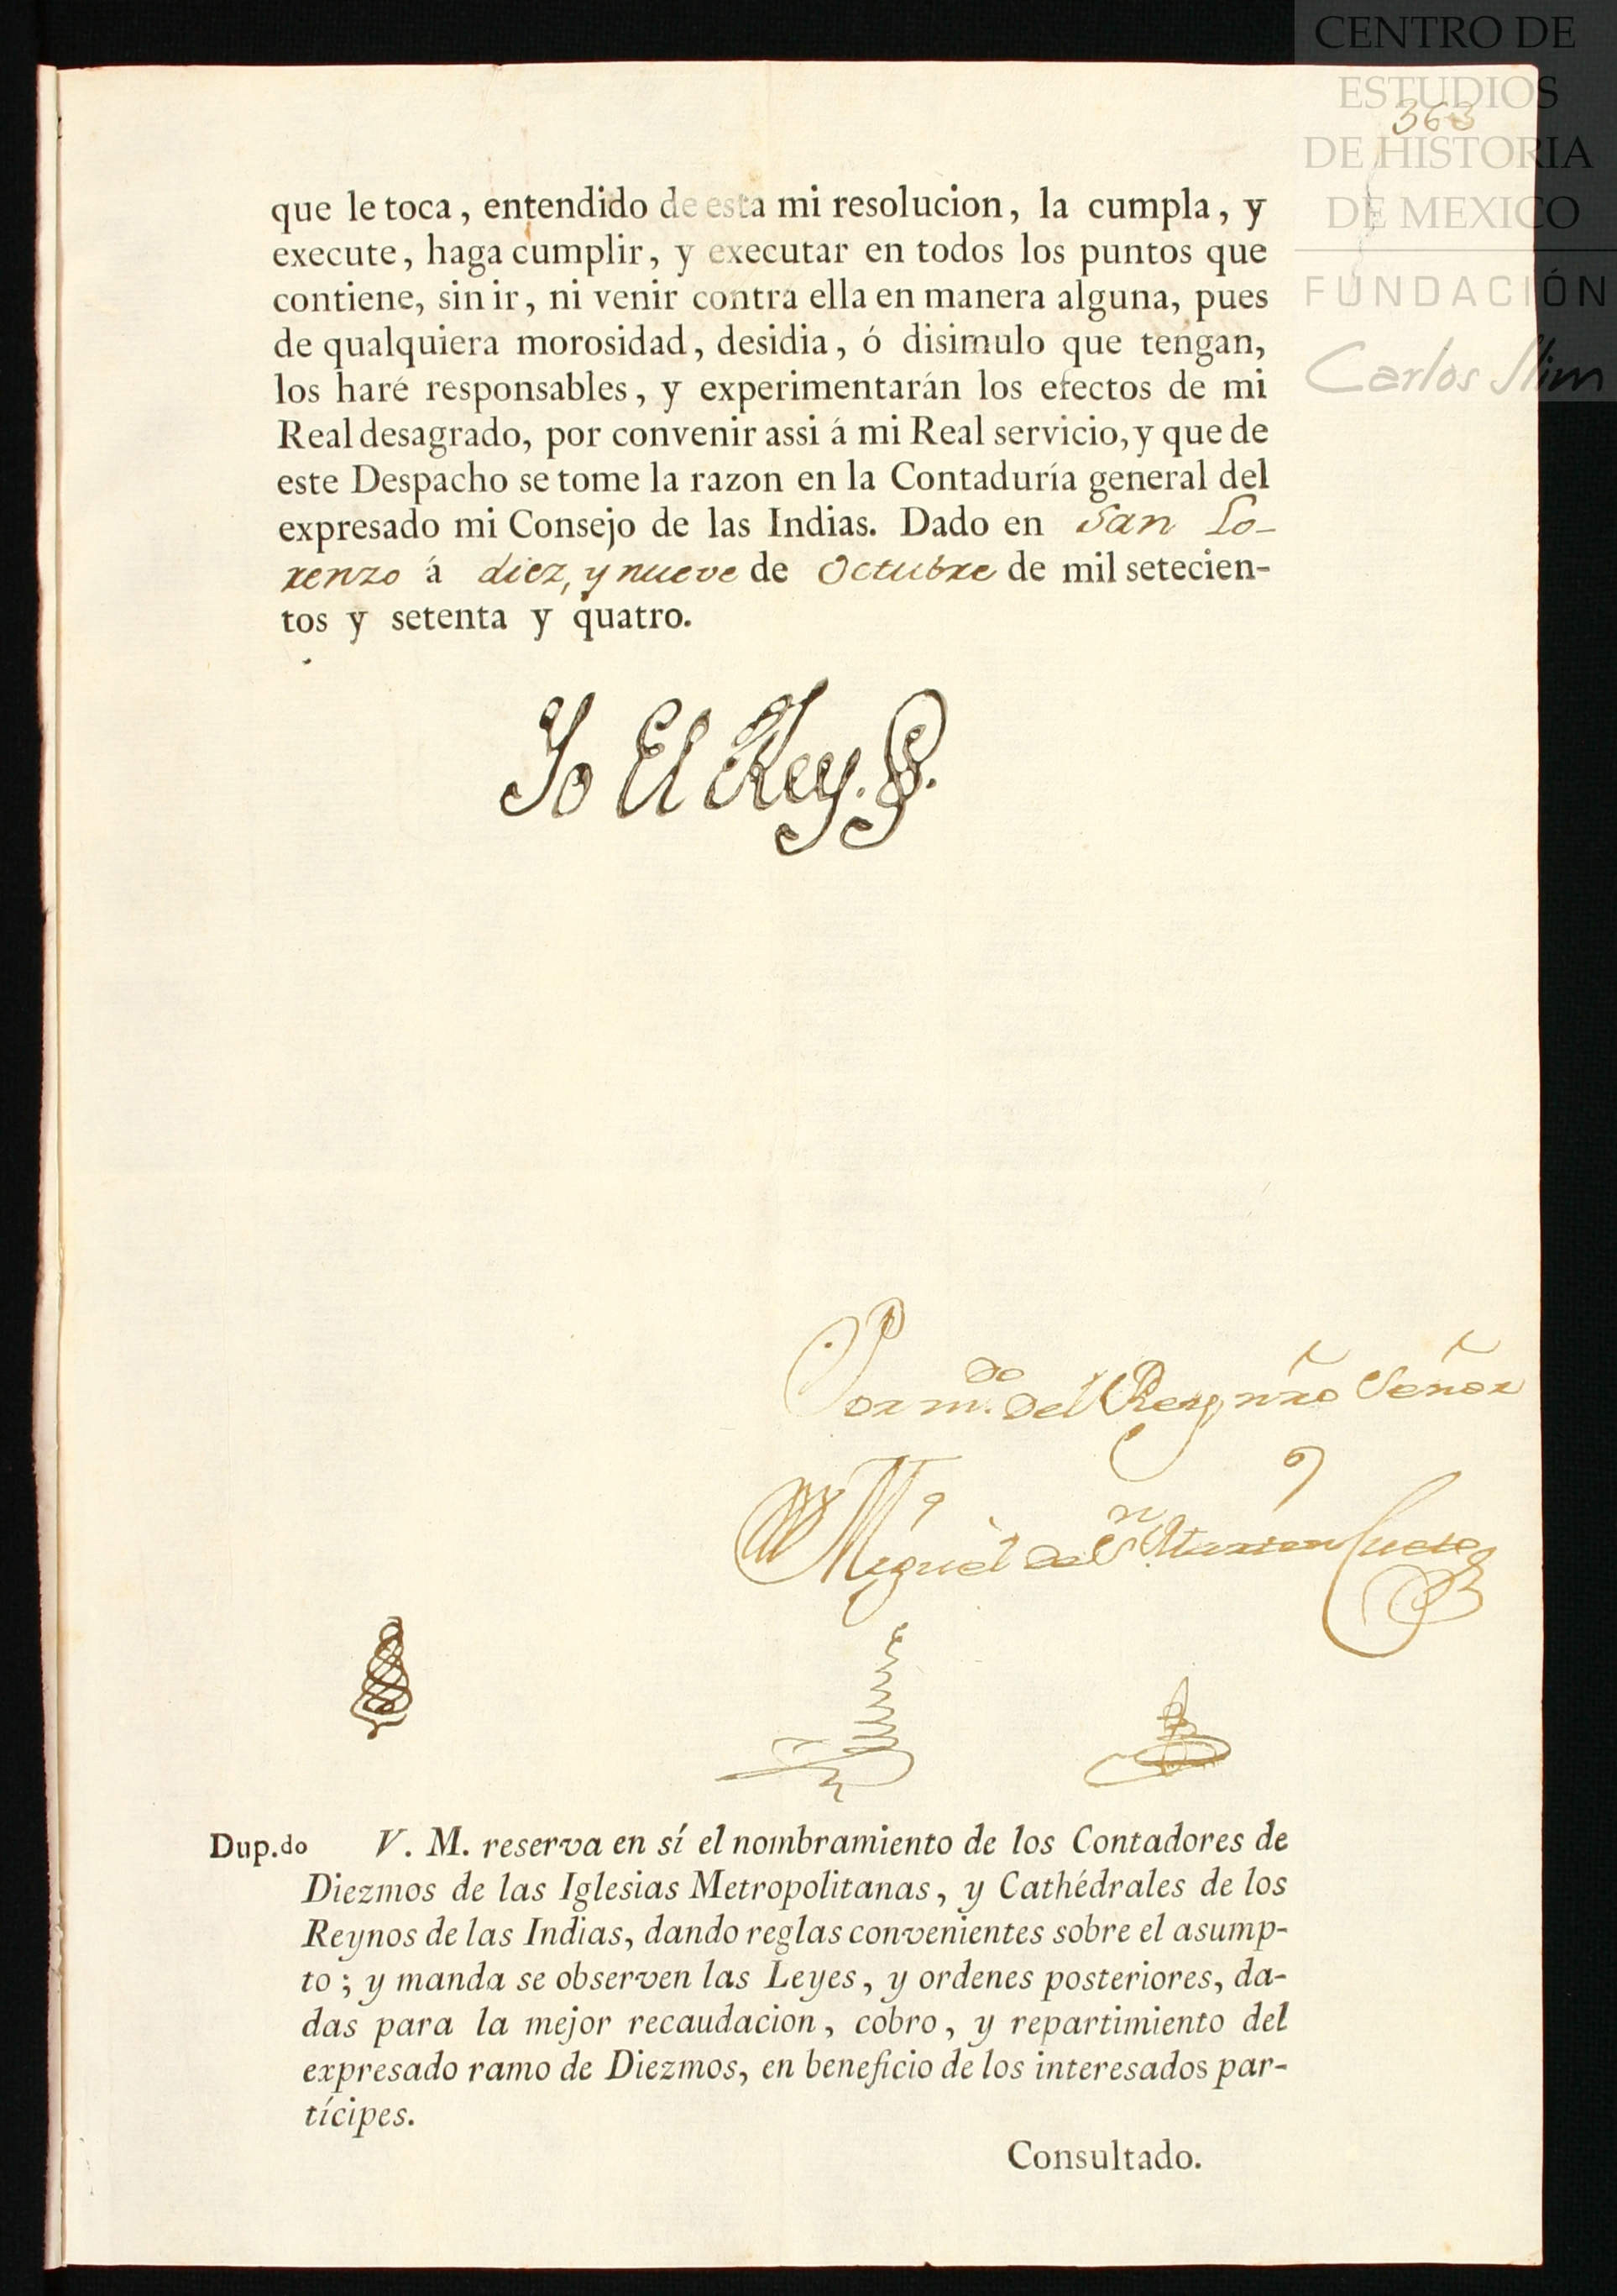 CENTRO DE
ESTUDIOS
DE HISTORIA
DE MEXICO
FUNDACIÓN
Carlos Slim
363
que le toca, entendido de esta mi resolucion, la cumpla, y
execute, haga cumplir, y executar en todos los puntos que
contiene, sin ir, ni venir contra ella en manera alguna, pues
de qualquiera morosidad, desidia, ó disimulo que tengan,
los haré responsables, y experimentarán los efectos de mi
Real desagrado, por convenir assi á mi Real servicio, y que de
este Despacho se tome la razon en la Contaduría general del
expresado mi Consejo de las Indias. Dado en San Lo-
renzo á diez, y nueve de Octubre de mil setecien-
tos y setenta y quatro.
Yo El Rey.
Por m.do del Rey nro Señor
Miguel de Sn. Martin Cueto
Dup.do V. M. reserva en sí el nombramiento de los Contadores de
Diezmos de las Iglesias Metropolitanas, y Cathédrales de los
Reynos de las Indias, dando reglas convenientes sobre el asump-
to; y manda se observen las Leyes, y ordenes posteriores, da-
das para la mejor recaudacion, cobro, y repartimiento del
expresado ramo de Diezmos, en beneficio de los interesados par-
tícipes.
Consultado.